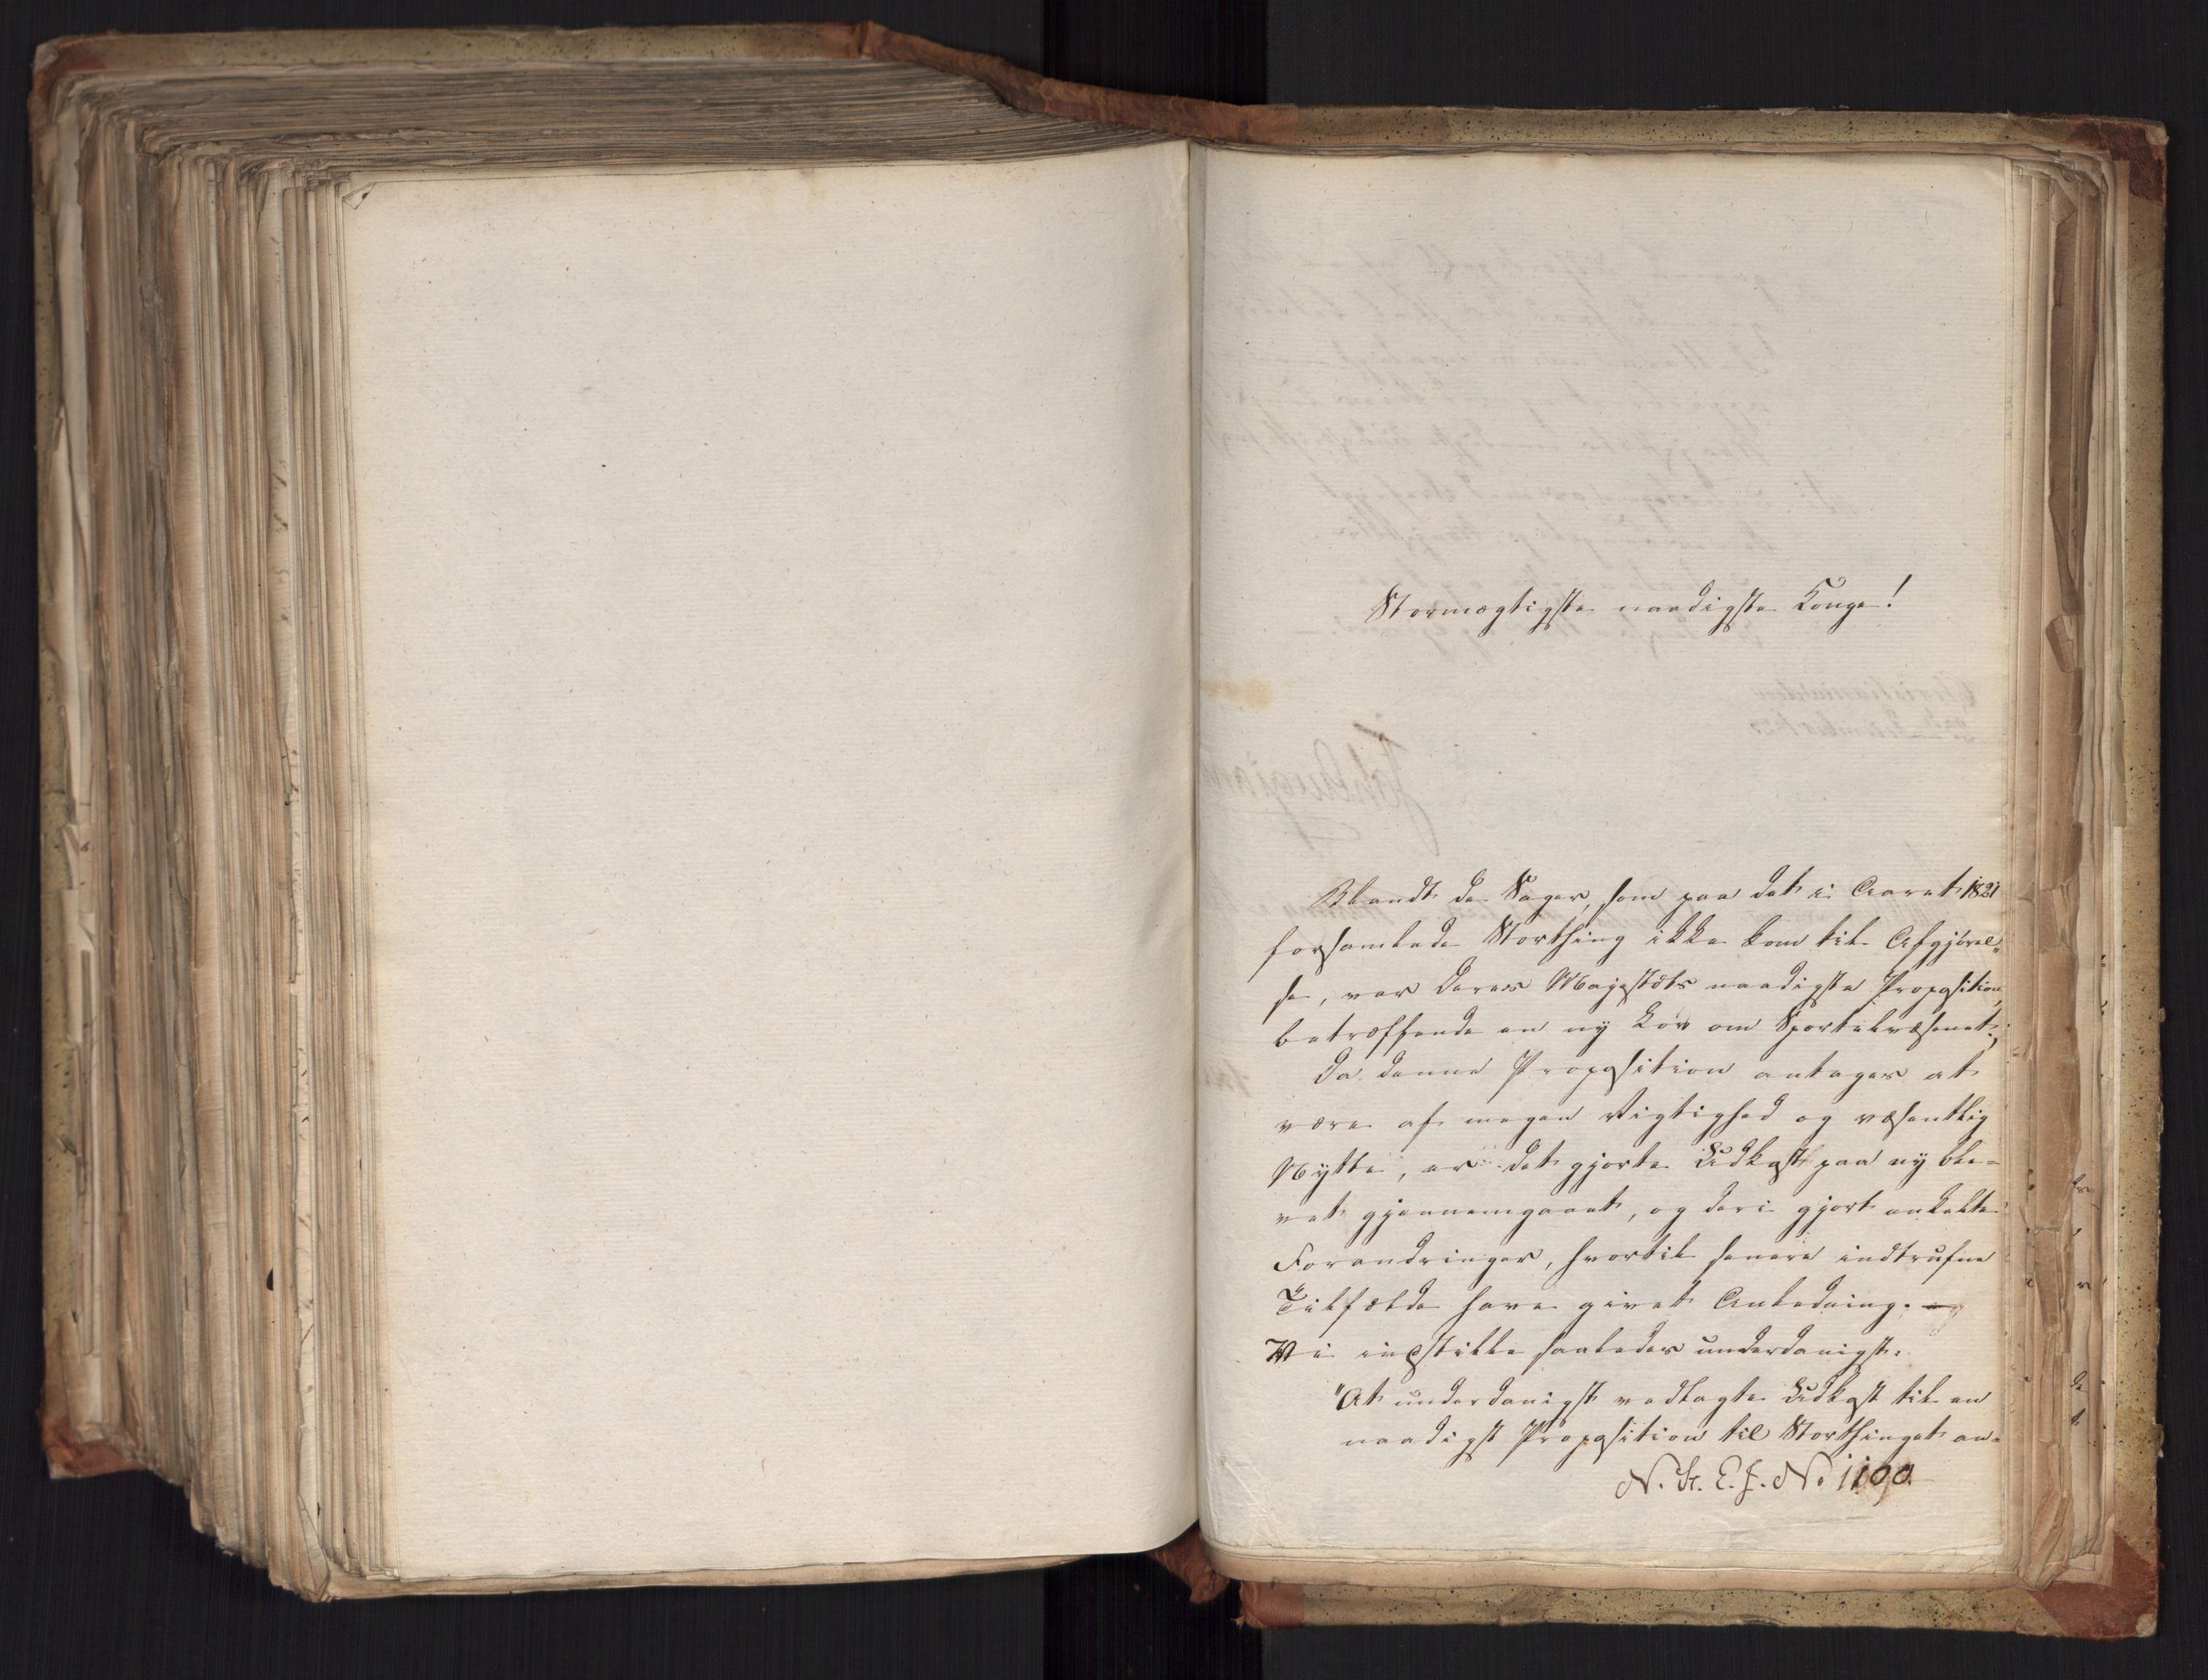 Stormægtigste naadigste Konge!
Blandt de Sager, som paa det i Aaret 1821
forsamlede Storthing ikke kom til Afgjørel-
se, var Deres Majestæts naadigste Proposition,
betræffende en ny Lov om Sportelvæsenet;
da denne Proposition antages at
være af megen Vigtighed og væsentlig
Nytte, er det gjorte Udkast paa ny ble-
vet gjennemgaaet, og deri gjort enkelte
Forandringer, hvortil senere indtrufne
Tilfælde have givet Anledning. —
Vi indstille saaledes underdanigst:
"At underdanigst vedlagte Udkast til en
naadigst Proposition til Storthinget an-
N. H. E. J. No 1190.